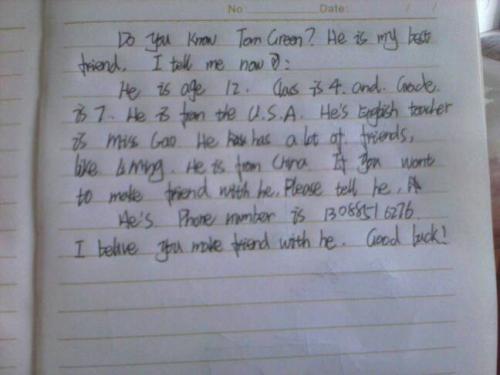 No Date: / /
Do you know Tom Green? He is my best
friend. I tell me now:
He is age 12. Class is 4. and. Grade.
is 7. He is from the U.S.A. He's English teacher
is Miss Gao. He has a lot of friends,
like Liming. He is from China If you want
to make friend with he. Please tell he.
He's. Phone number is
I belive you make friend with he. Good luck!